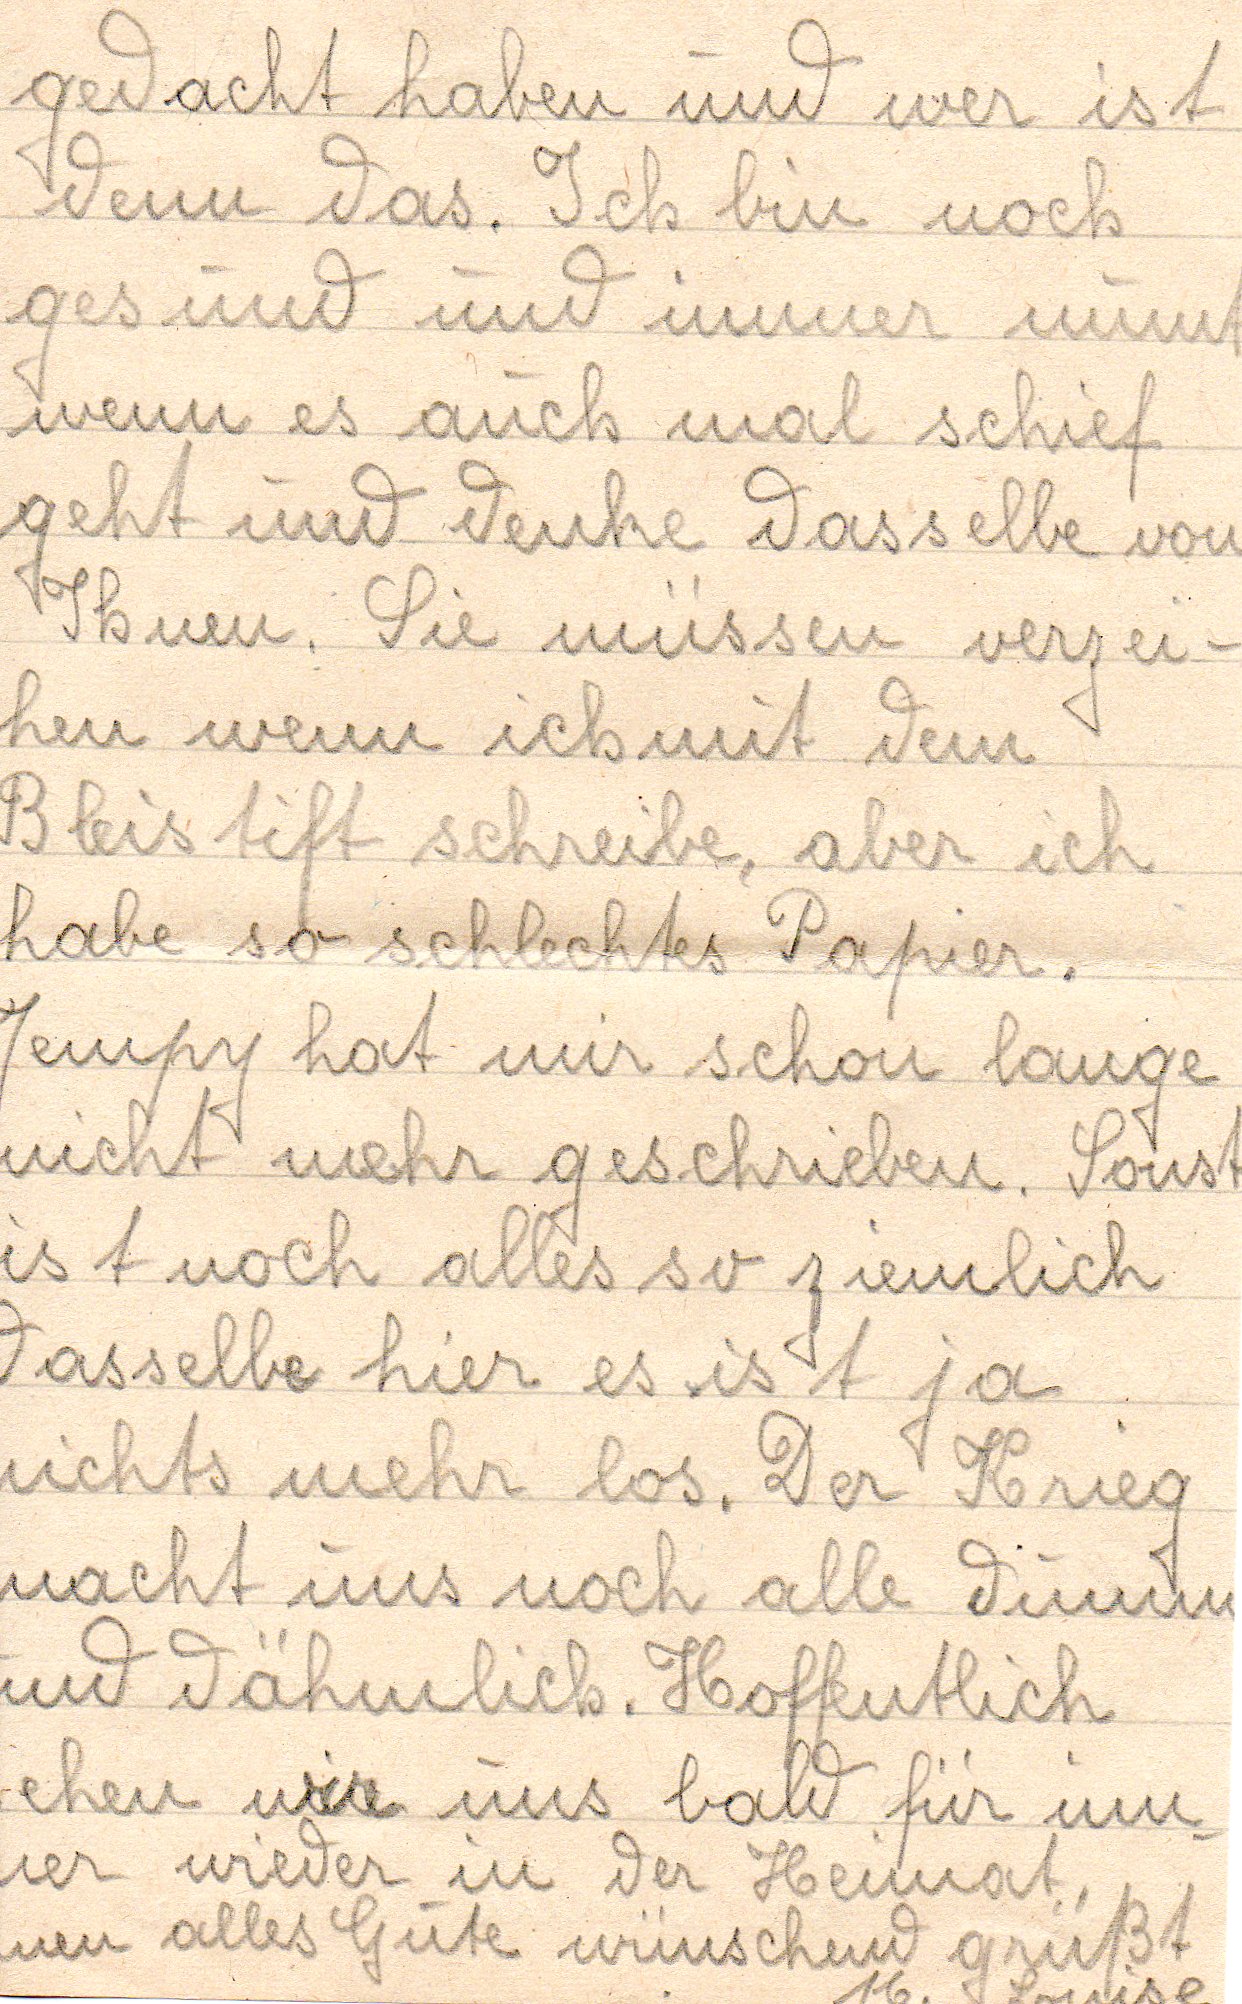 gedacht haben und wer ist
denn das. Ich bin noch
gesund und immer
wenn es auch mal schief
geht und denke dasselbe von
Ihnen. Sie müssen verzei-
hen wenn ich mit dem
Bleistift schreibe, aber ich
habe so schlechtes Papier.
Jempy hat mir schon lange
nicht mehr geschrieben. Sonst
ist noch alles so ziemlich
dasselbe hier es ist ja
nichts mehr los. Der Krieg
macht uns noch alle dumm
und dähmlich. Hoffentlich
sehen wir uns bald für im-
mer wieder in der Heimat.
nen alles Gute wünschend grüßt
Louise